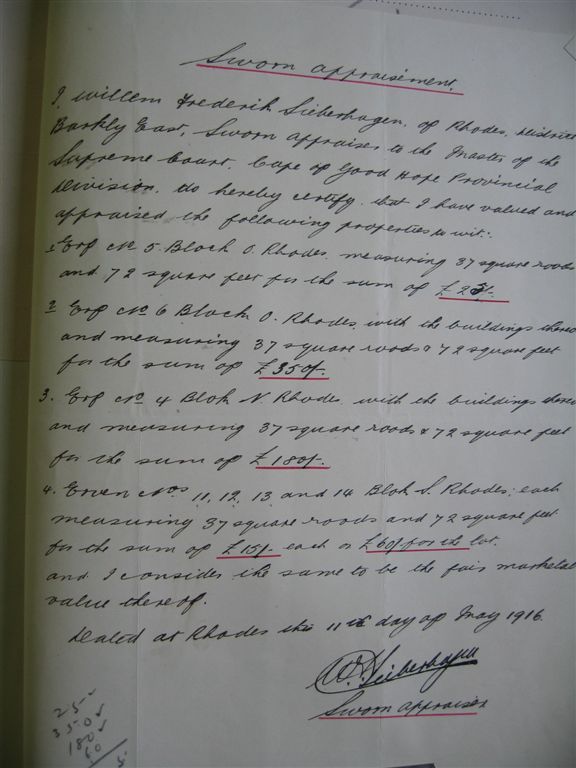 Sworn appraisement.
I, Willem Frederik Sieberhagen, of Rhodes, District
Barkly East, Sworn Appraiser to the Master of the
Supreme Court, Cape of Good Hope Provincial
Division, do hereby certify that I have valued and
appraised the following properties to wit:
1 Erf No 5 Block O. Rhodes, measuring 37 square roods
and 72 square feet for the sum of £25/-
2 Erf No 6 Block O. Rhodes, with the buildings thereo
and measuring 37 square roods & 72 square feet
for the sum of £350/-
3. Erf No 4 Blok N Rhodes, with the buildings thereo
and measuring 37 square roods & 72 square feet
for the sum of £180/-.
4. Erven Nos 11, 12, 13 and 14 Blok S. Rhodes; each
measuring 37 square roods and 72 square feet
for the sum of £15/- each or £60/- for the lot.
and I consider the same to be the fair marketab
value thereof.
Dated at Rhodes this 11th day of May 1916.
W.F. Sieberhagen
Sworn Appraiser
25
350
180
60